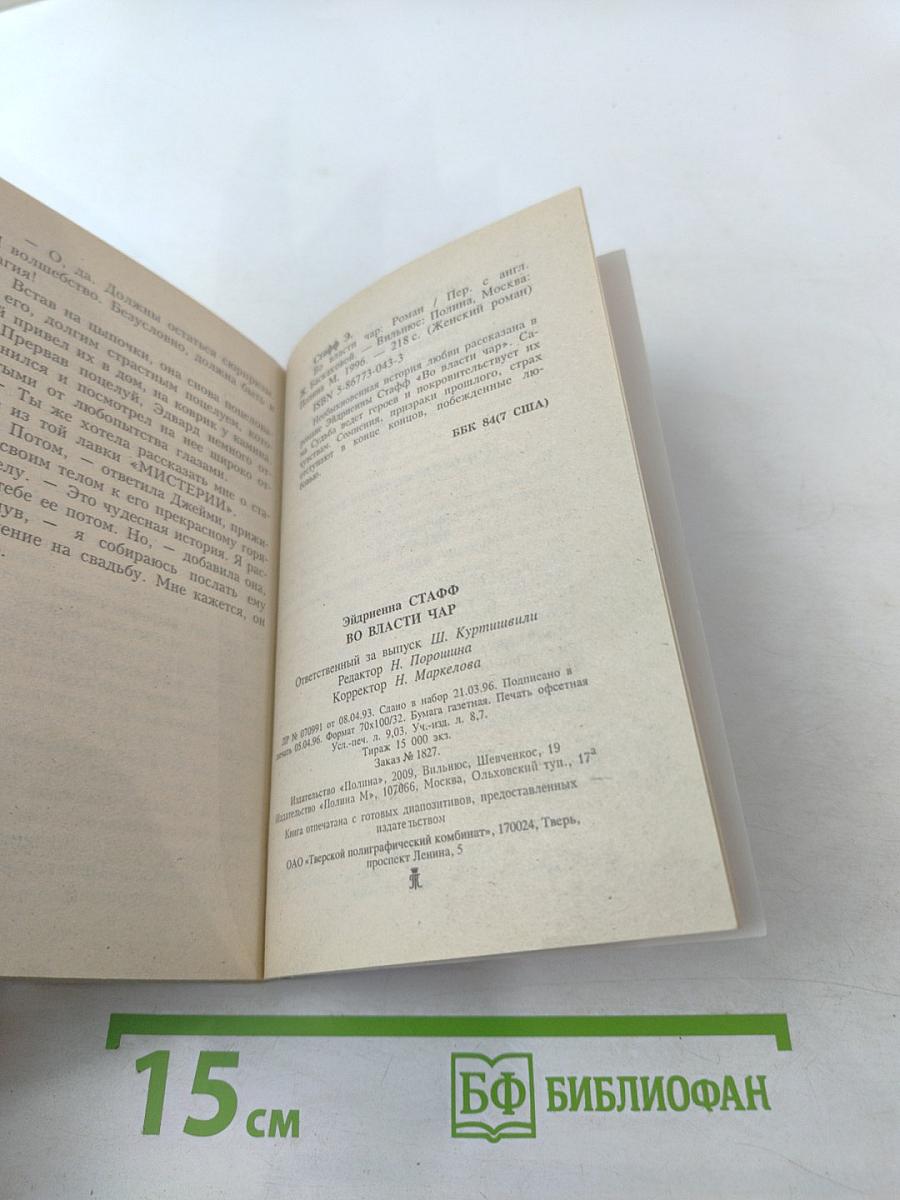 — О, да. Должны остаться сюрпризы
волшебство. Безусловно, должна быть и
магия!
Встав на цыпочки, она снова поцеловала
его, долгим страстным поцелуем, кото-
й привел их в дом, на коврик у камина.
Прервав поцелуй, Эдвард немного от-
нился и посмотрел на нее широко от-
тыми от любопытства глазами.
— Ты же хотела рассказать мне о ста-
из той лавки «МИСТЕРИИ».
Потом, — ответила Джейми, прижи-
своим телом к его прекрасному горя-
елу. — Это чудесная история. Я рас-
тебе ее потом. Но, — добавила она,
ув, — я собираюсь послать ему
ение на свадьбу. Мне кажется, он
Стафф Э.
Во власти чар: Роман / Пер. с англ.
Ж. — Вильнюс: Полина, Москва:
Полина М, 1996. — 218 с. (Женский роман)
ISBN 5-86773-043-3
Необыкновенная история любви рассказана в
романе Эйдриенны Стафф «Во власти чар». Са-
ма Судьба ведет героев и покровительствует их
чувствам. Сомнения, призраки прошлого, страх
отступают в конце концов, побежденные лю-
бовью.
ББК 84(7 США)
Эйдриенна СТАФФ
ВО ВЛАСТИ ЧАР
Ответственный за выпуск Ш. Куртишвили
Редактор Н. Порошина
Корректор Н. Маркелова
ЛР № 070991 от 08.04.93. Сдано в набор 21.03.96. Подписано в
печать 05.04.96. Формат 70х100/32. Бумага газетная. Печать офсетная
Усл.-печ. л. 9,03. Уч.-изд. л. 8,7.
Тираж 15 000 экз.
Заказ № 1827.
Издательство «Полина», 2009, Вильнюс, Шевченкос, 19
Издательство «Полина М», 107066, Москва, Ольховский туп., 17а
Книга отпечатана с готовых диапозитивов, предоставленных
издательством
ОАО «Тверской полиграфический комбинат», 170024, Тверь,
проспект Ленина, 5
15 см
БФ БИБЛИОФАН